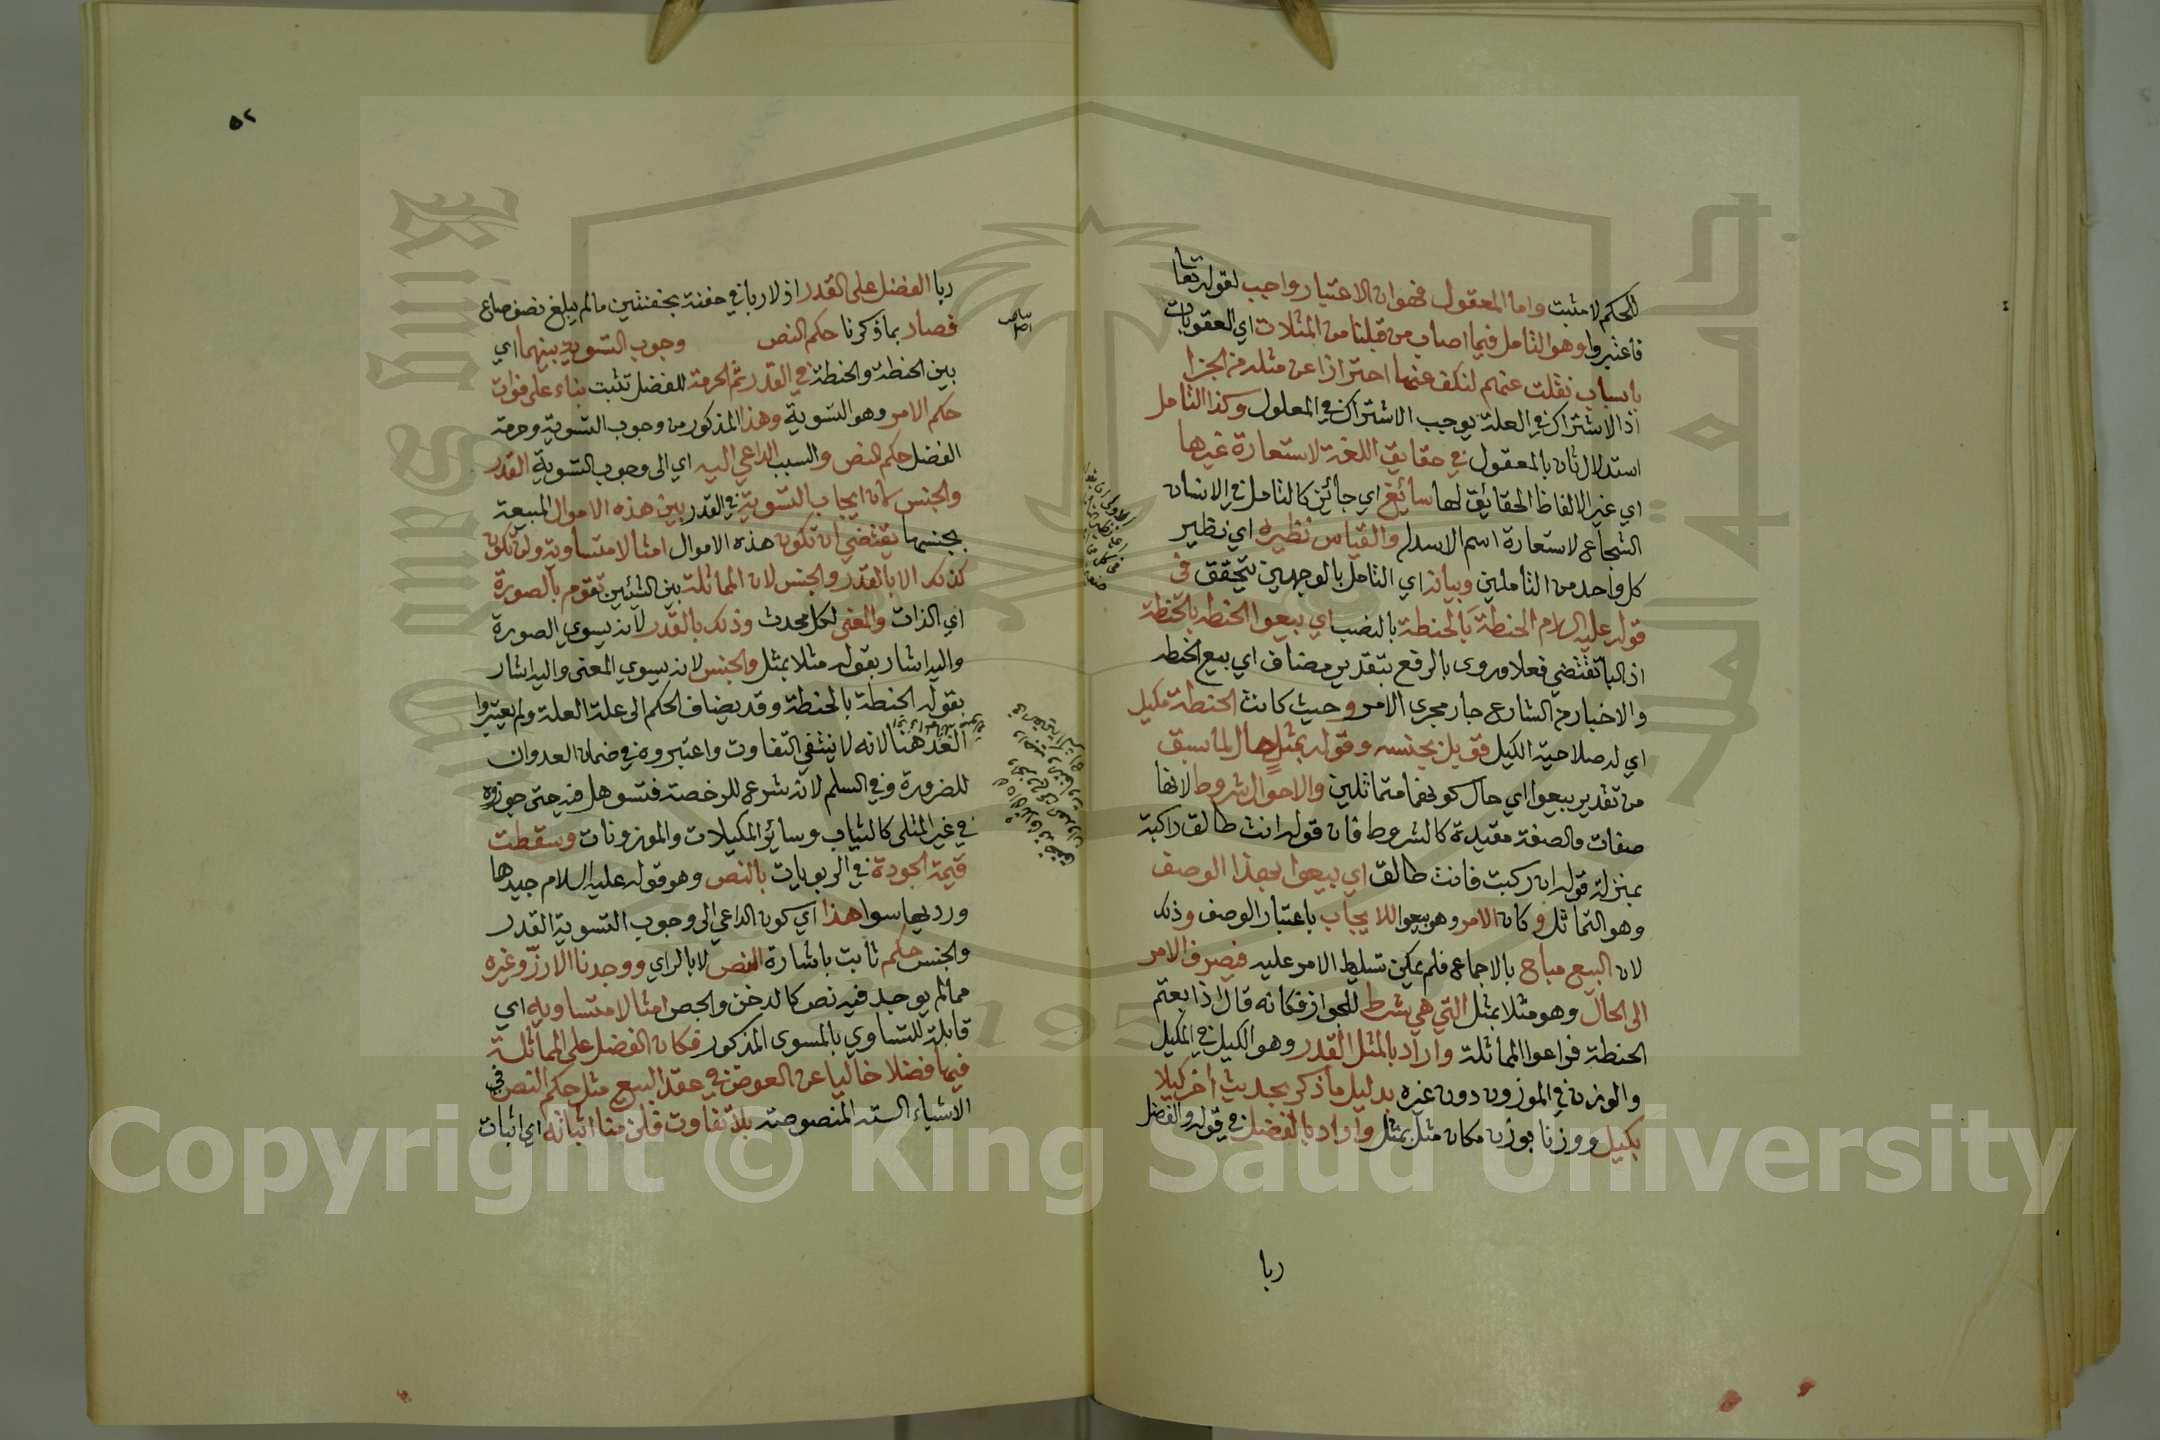 للحكم لا مثبت واما المعقول فهو ان الاعتبار واجب لقوله تعا
فاعتبروا وهو التامل فيما اصاب من قبلنا من المثلات اي العقوبات
باسباب نقلت عنهم لنكف عنها احترازا عن مثله من الجزا
اذ الاشتراك في العلة يوجب الاشتراك في المعلول وكذا التامل
استدلال ثان بالمعقول في حقايق اللغة لاستعارة غيرها
اي غير الالفاظ الحقائق لها سائغ اي جائز كالتامل في الانسان
الشجاع لاستعارة اسم الاسد له والقياس نظيره اي نظير
كل واحد من التاملين وبيانه اي التامل بالوجهين يتحقق في
قوله عليه السلام الحنطة بالحنطة بالنصب اي بيعوا الحنطه بالحنطة
اذ البا تقتضي فعلا وروى بالرفع بتقدير مضاف اي بيع الحنطه
والاخبار من الشارع جار مجرى الامر وحيث كانت الحنطة مكيل
اي له صلاحية الكيل قوبل بجنسه وقوله بمثل حال لما سبق
من تقدير بيعوا اي حال كونهما متماثلين والاحوال شروط لانها
صفات والصفة مقيدة كالشروط فان قوله انت طالق راكبة
بمنزلة قوله ان ركبت فانت طالق اي بيعوا بهذا الوصف
وهو التماثل وكان الامر وهو بيعوا للايجاب باعتبار الوصف وذلك
لان البيع مباح بالاجماع فلم يمكن تسليط الامر عليه فيصرف الامر
الى الحال وهو مثلا بمثل التي هي شرط للجواز فكانه قال اذا بعتم
الحنطة فراعوا المماثلة واراد بالمثل القدر وهو الكيل في المكيل
والوزن في الموزون دون غيره بدليل ما ذكر بحديث اخر كيلا
بكيل ووزنا بوزن مكان مثل بمثل واراد بالفضل في قوله والفضل
ربا
٥٢
ربا الفضل على القدر اذ لا ربا في حفنة بحفنتين مالم يبلغ نصف صاع
فصار بما ذكرنا حكم النص وجوب التسوية بينهما اي
بين الحنطة والحنطة في القدر ثم الحرمة للفضل تثبت بناء على فوات
حكم الامر وهو التسوية وهذا المذكور من وجوب التسوية وحرمة
الفضل حكم النص والسبب الداعي اليه اي الى وجوب التسوية القدر
والجنس لان ايجاب التسوية في القدر بين هذه الاموال المبيعة
بجنسها يقتضي ان تكون هذه الاموال امثالا متساوية ولن تكون
كذلك الا بالقدر والجنس لان المماثلة بين الشيئين تقوم بالصورة
اي الذات والمعنى لكل محدث وذلك بالقدر لانه يسوي الصورة
واليه اشار بقوله مثلا بمثل والجنس لانه يسوي المعنى واليه اشار
بقوله الحنطة بالحنطة وقد يضاف الحكم الى علة العلة ولم يعتبروا
العد هنا لانه لا ينفي التفاوت واعتبروه في ضمان العدوان
للضرورة وفي السلم لانه شرع للرخصة فتسوهل فيه حتى جوزوه
في غير المثلى كالثياب وسائر المكيلات والموزونات وسقطت
قيمة الجودة في الربويات بالنص وهو قوله عليه السلام جيدها
ورديها سوا هذا اي كون الداعي الى وجوب التسوية القدر
والجنس حكم ثابت باشارة النص لا بالراي ووجدنا الارز وغيره
مما لم يوجد فيه نص كالدخن والجص امثالا متساوية اي
قابلة للتساوي بالمسوى المذكور فكان الفضل على المماثلة
فيها فضلا خاليا عن العوض في عقد البيع مثل حكم النص في
الاشياء الستة المنصوصة بلا تفاوت فلزمنا اثباته اي اثبات
Copyright © King Saud University